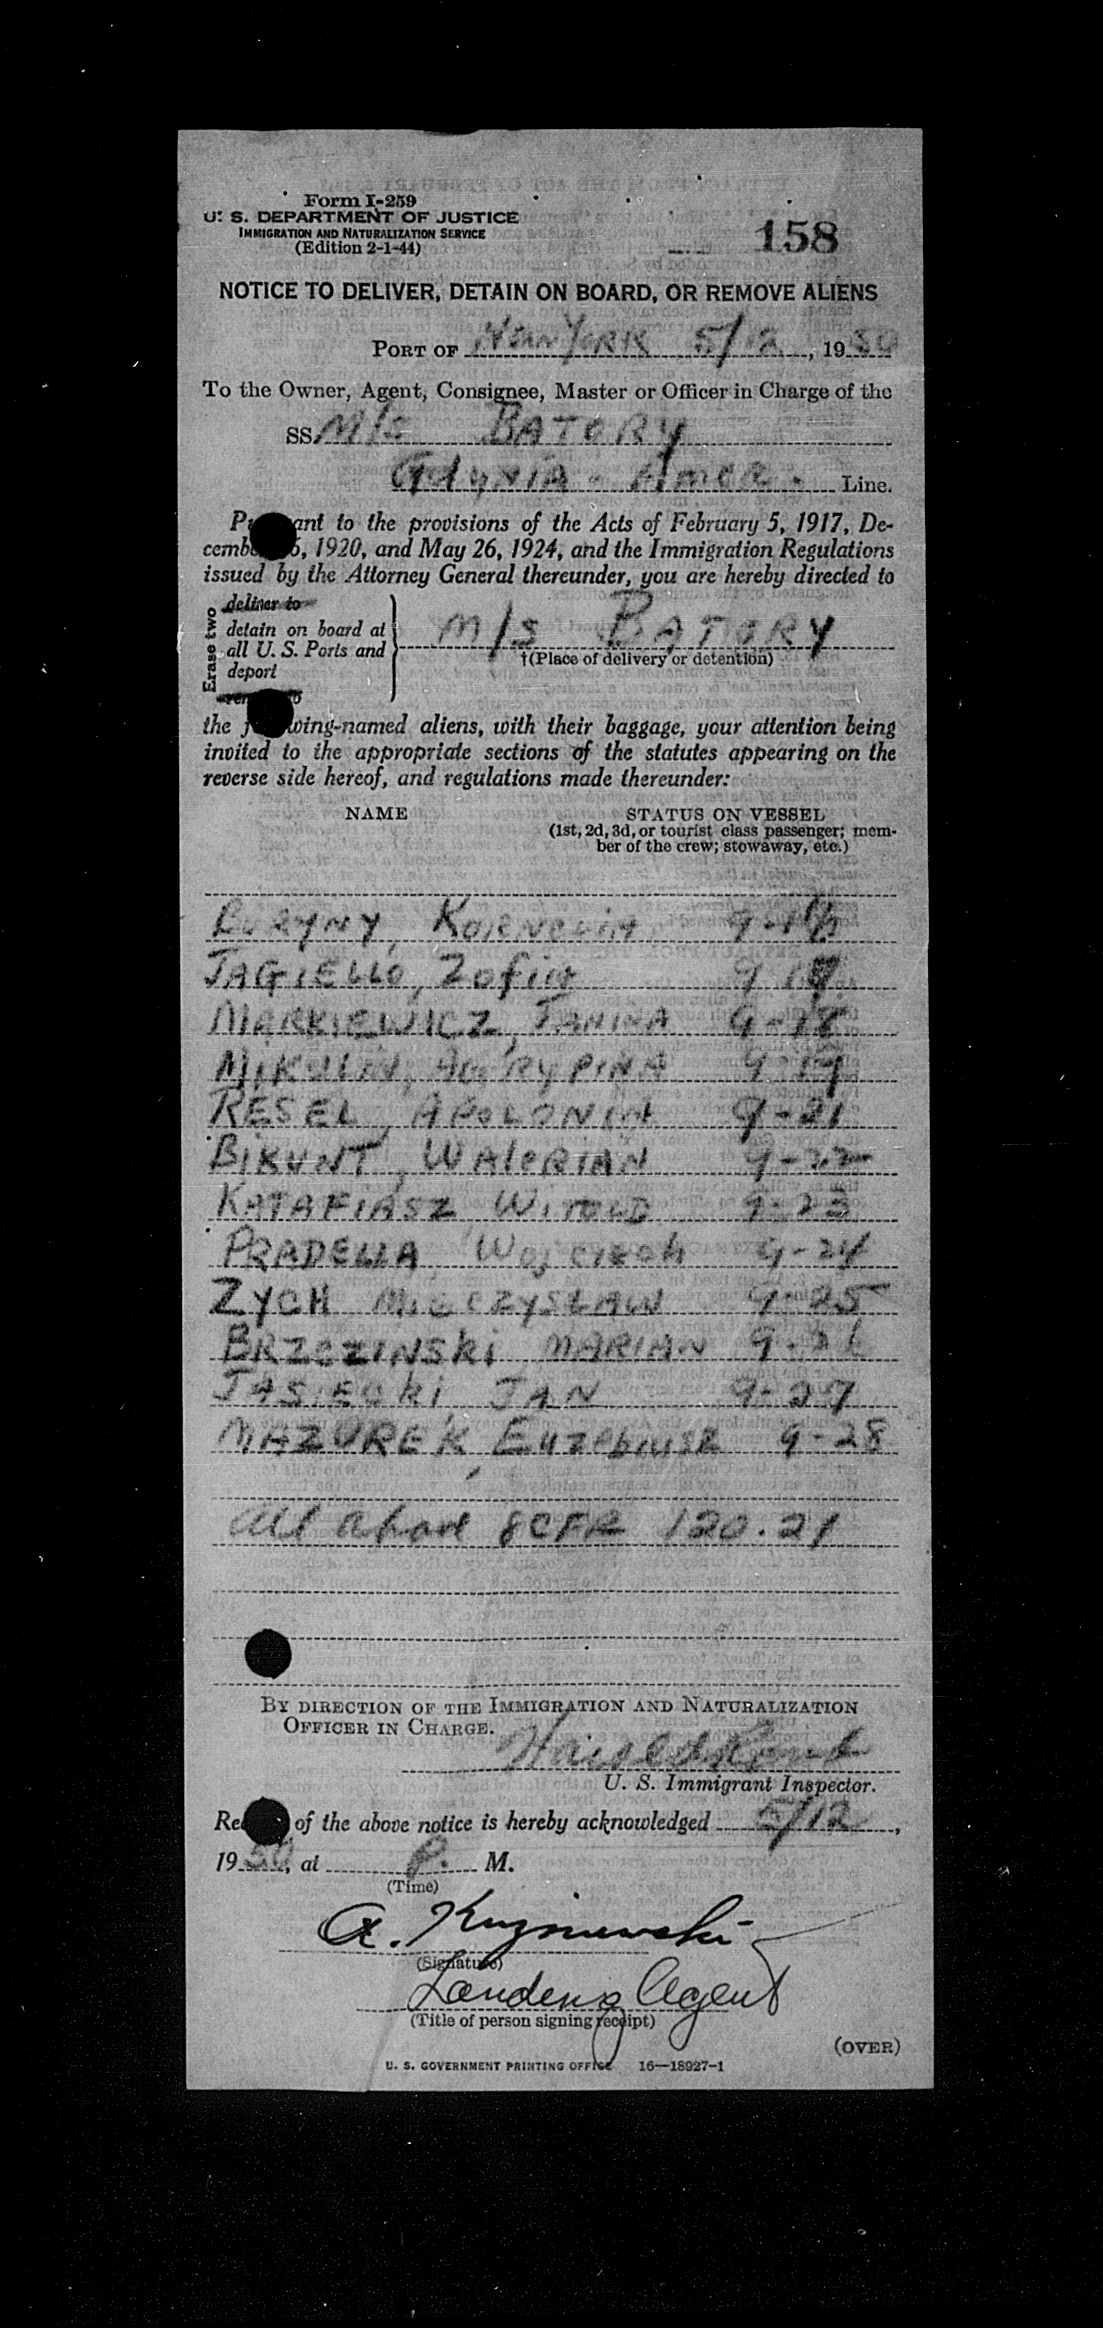 Form I-259
U. S. DEPARTMENT OF JUSTICE
IMMIGRATION AND NATURALIZATION SERVICE
(Edition 2-1-44)
158
NOTICE TO DELIVER, DETAIN ON BOARD, OR REMOVE ALIENS
PORT OF New York 5/12, 1950
To the Owner, Agent, Consignee, Master or Officer in Charge of the
SS M/S BATORY
Gdynia - Amer. Line.
Pu ant to the provisions of the Acts of February 5, 1917, De-
cemb 5, 1920, and May 26, 1924, and the Immigration Regulations
issued by the Attorney General thereunder, you are hereby directed to
Erase two
deliver to
detain on board at
all U. S. Ports and
deport
M/S BATORY
†(Place of delivery or detention)
the f wing-named aliens, with their baggage, your attention being
invited to the appropriate sections of the statutes appearing on the
reverse side hereof, and regulations made thereunder:
NAME STATUS ON VESSEL
(1st, 2d, 3d, or tourist class passenger; mem-
ber of the crew; stowaway, etc.)
BURYNY, KORNELIA
JAGIELLO, Zofia
MARKIEWICZ, JANINA 9-18
MIKULIN, AGRYPINA 9-19
RESEL, APOLONIA 9-21
BIKUNT, WALERIAN 9-22
KATAFIASZ WITOLD 9-23
PRADELLA Wojciech 9-24
ZYCH MIECZYSLAW 9-25
BRZEZINSKI MARIAN 9-26
JASIECKI JAN 9-27
MAZUREK, 9-28
All above 8CFR 120.21
BY DIRECTION OF THE IMMIGRATION AND NATURALIZATION
OFFICER IN CHARGE.
U. S. Immigrant Inspector.
Re of the above notice is hereby acknowledged 5/12,
1950, at P. M.
(Time)
A. Kuzniewski
(Signature)
Landing Agent
(Title of person signing receipt)
(OVER)
U. S. GOVERNMENT PRINTING OFFICE 16—18927-1